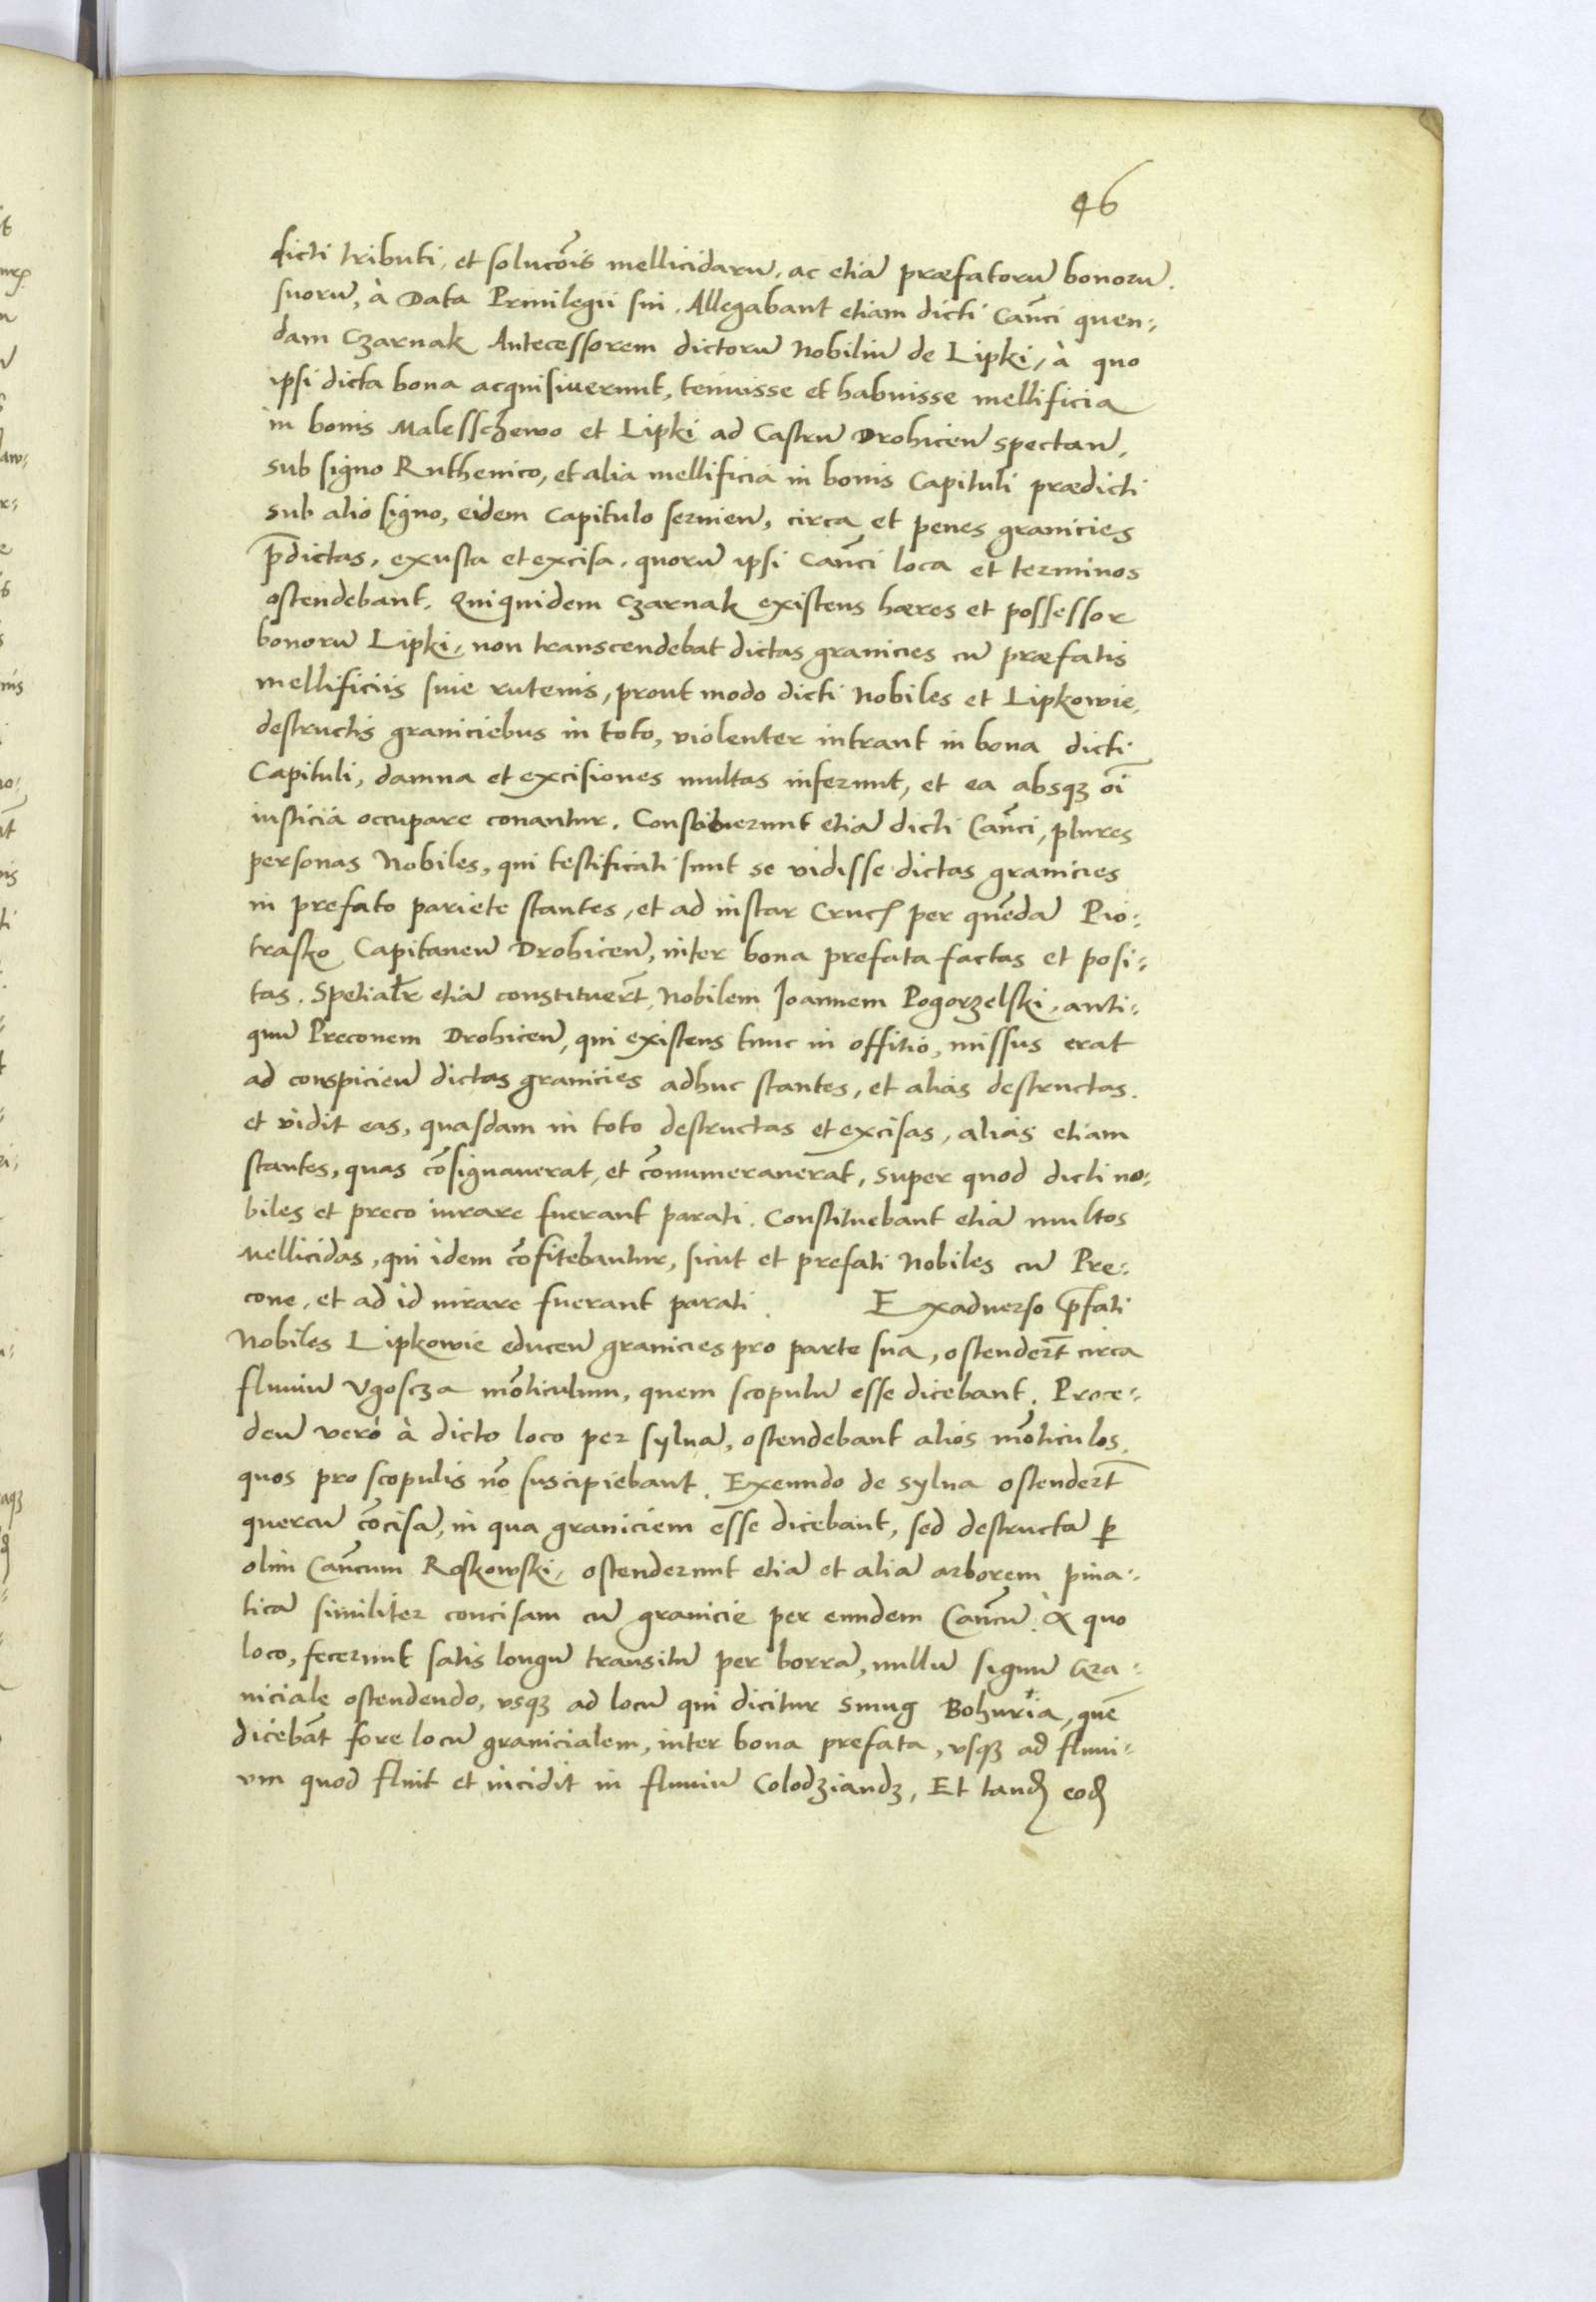 46
dicti tributi, et solucōis mellicidarū, ac etiā præfatorū bonorū.
suorū, à Data Privilegii sui. Allegabant etiam dicti Canci quen:
dam Czarnak Antecessorem dictorū Nobiliū de Lipki, à quo
ipsi dicta bona acquisiuerunt, tenuisse et habuisse mellificia
in bonis Malesschewo et Lipki ad Castrū Drohicen̄ spectan̄,
sub signo Ruthenico, et alia mellificia in bonis Capituli prædicti
sub alio signo, eidem Capitulo servien̄, circa et penes granicies
p̄dictas, exusta et excisa, quorū ipsi Canci loca et terminos
ostendebant. Quiquidem Czarnak existens hæres et possessor
bonorū Lipki, non transcendebat dictas granicies cū præfatis
mellificiis suie rutenis, prout modo dicti Nobiles et Lipkowie,
destructis graniciebus in toto, violenter intrant in bona dicti
Capituli, damna et excisiones multas inferunt, et ea absqʒ oī
iusticia occupare conantur. Constituerunt etiā dicti Canci, plures
personas Nobiles, qui testificati sunt se vidisse dictas granicies
in prefato pariete stantes, et ad instar Crucꝭ per quēdā Pio:
trasko Capitaneū Drohicen̄, inter bona prefata factas et posi:
tas. Spetialr̄ etiā constituer̄t Nobilem Joannem Pogorzelski, anti:
quū Preconem Drohicen̄, qui existens tunc in offitio, missus erat
ad conspicien̄ dictas granicies adhuc stantes, et alias destructas.
et vidit eas, quasdam in toto destructas et excisas, alias etiam
stantes, quas cōsignauerat, et cōnumerauerat, super quod dicti no:
biles et preco iurare fuerant parati. Constituebant etiā multos
Mellicidas, qui idem cōfitebantur, sicut et prefati Nobiles cū Pre:
cone, et ad id iurare fuerant parati. Exadverso p̄fati
Nobiles Lipkowie educen̄ granicies pro parte sua, ostender̄t circa
fluuiū Vgoscza mōticulum, quem scopulū esse dicebant. Proce:
den̄ verò à dicto loco per syluā, ostendebant alios mōticulos,
quos pro scopulis nō suscipiebant. Exeundo de sylua ostender̄t
quercū cōcisā, in qua graniciem esse dicebant, sed destructā ꝑ
olim Cancum Roskowski, ostenderunt etiā et aliā arborem pina:
ticā similiter concisam cū granicie per eundem Cancū. A quo
loco, fecerunt satis longū transitū per borrā, nullū signū Gra:
niciale ostendendo, vsqʒ ad locū qui dicitur Smug Bohuria, quē
dicebāt fore locū granicialem, inter bona prefata, vsqʒ ad fluui:
vm quod fluit et incidit in fluuiū Colodziandz, Et tandꝭ eodꝭ